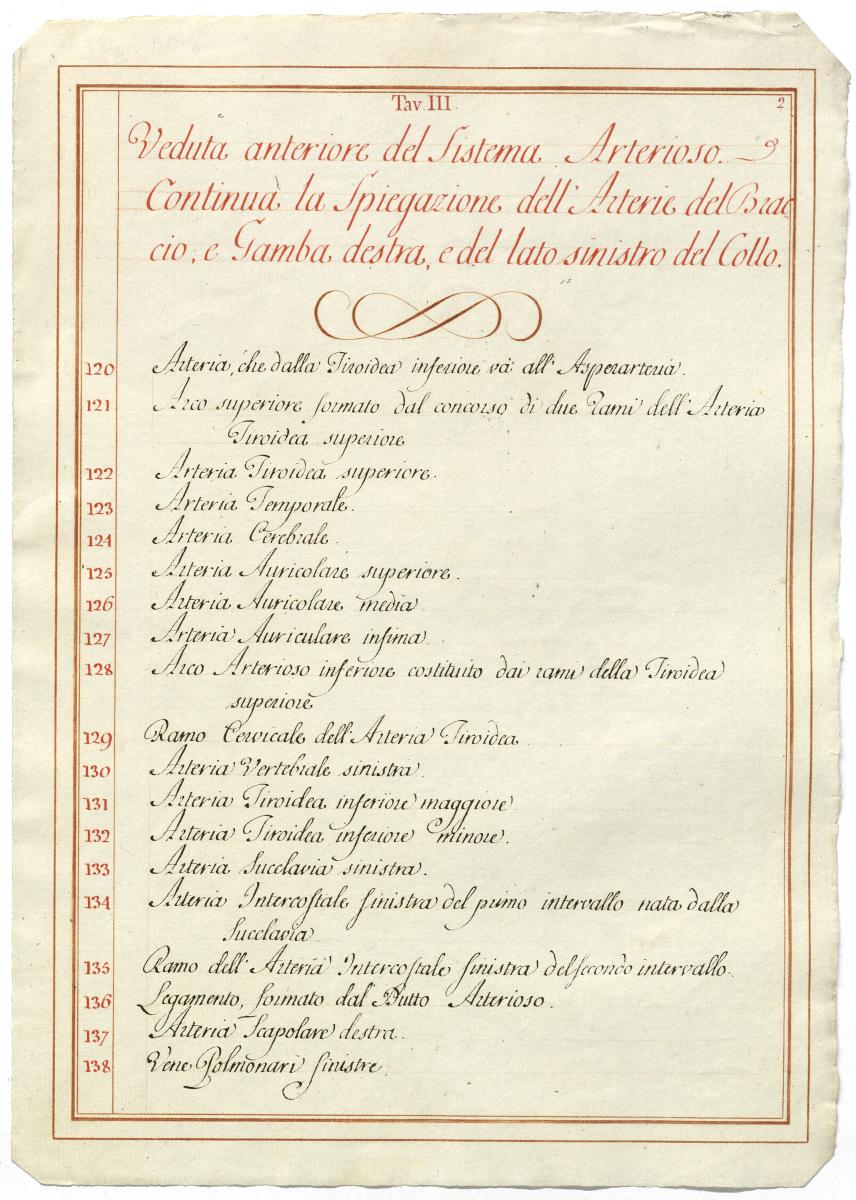 Tav III.
2
Veduta anteriore del Sistema Arterioso.
Continua la Spiegazione dell'Arterie del Brac
cio, e Gamba destra, e del lato sinistro del Collo.
120 Arteria, che dalla Tiroidea inferiore và all'Asperarteria.
121 Arco superiore formato dal concorso di due Rami dell'Arteria
Tiroidea superiore
122 Arteria Tiroidea superiore.
123 Arteria Temporale.
124 Arteria Cerebrale.
125 Arteria Auricolare superiore.
126 Arteria Auricolare media
127 Arteria Auriculare infima.
128 Arco Arterioso inferiore costituito dai rami della Tiroidea
superiore
129 Ramo Cervicale dell'Arteria Tiroidea.
130 Arteria Vertebrale sinistra.
131 Arteria Tiroidea inferiore maggiore
132 Arteria Tiroidea inferiore minore.
133 Arteria Succlavia sinistra.
134 Arteria Intercostale sinistra del primo intervallo nata dalla
Succlavia.
135 Ramo dell'Arteria Intercostale sinistra del secondo intervallo.
136 Legamento, formato dal Dutto Arterioso.
137 Arteria Scapolare destra.
138 Vene Polmonari sinistre